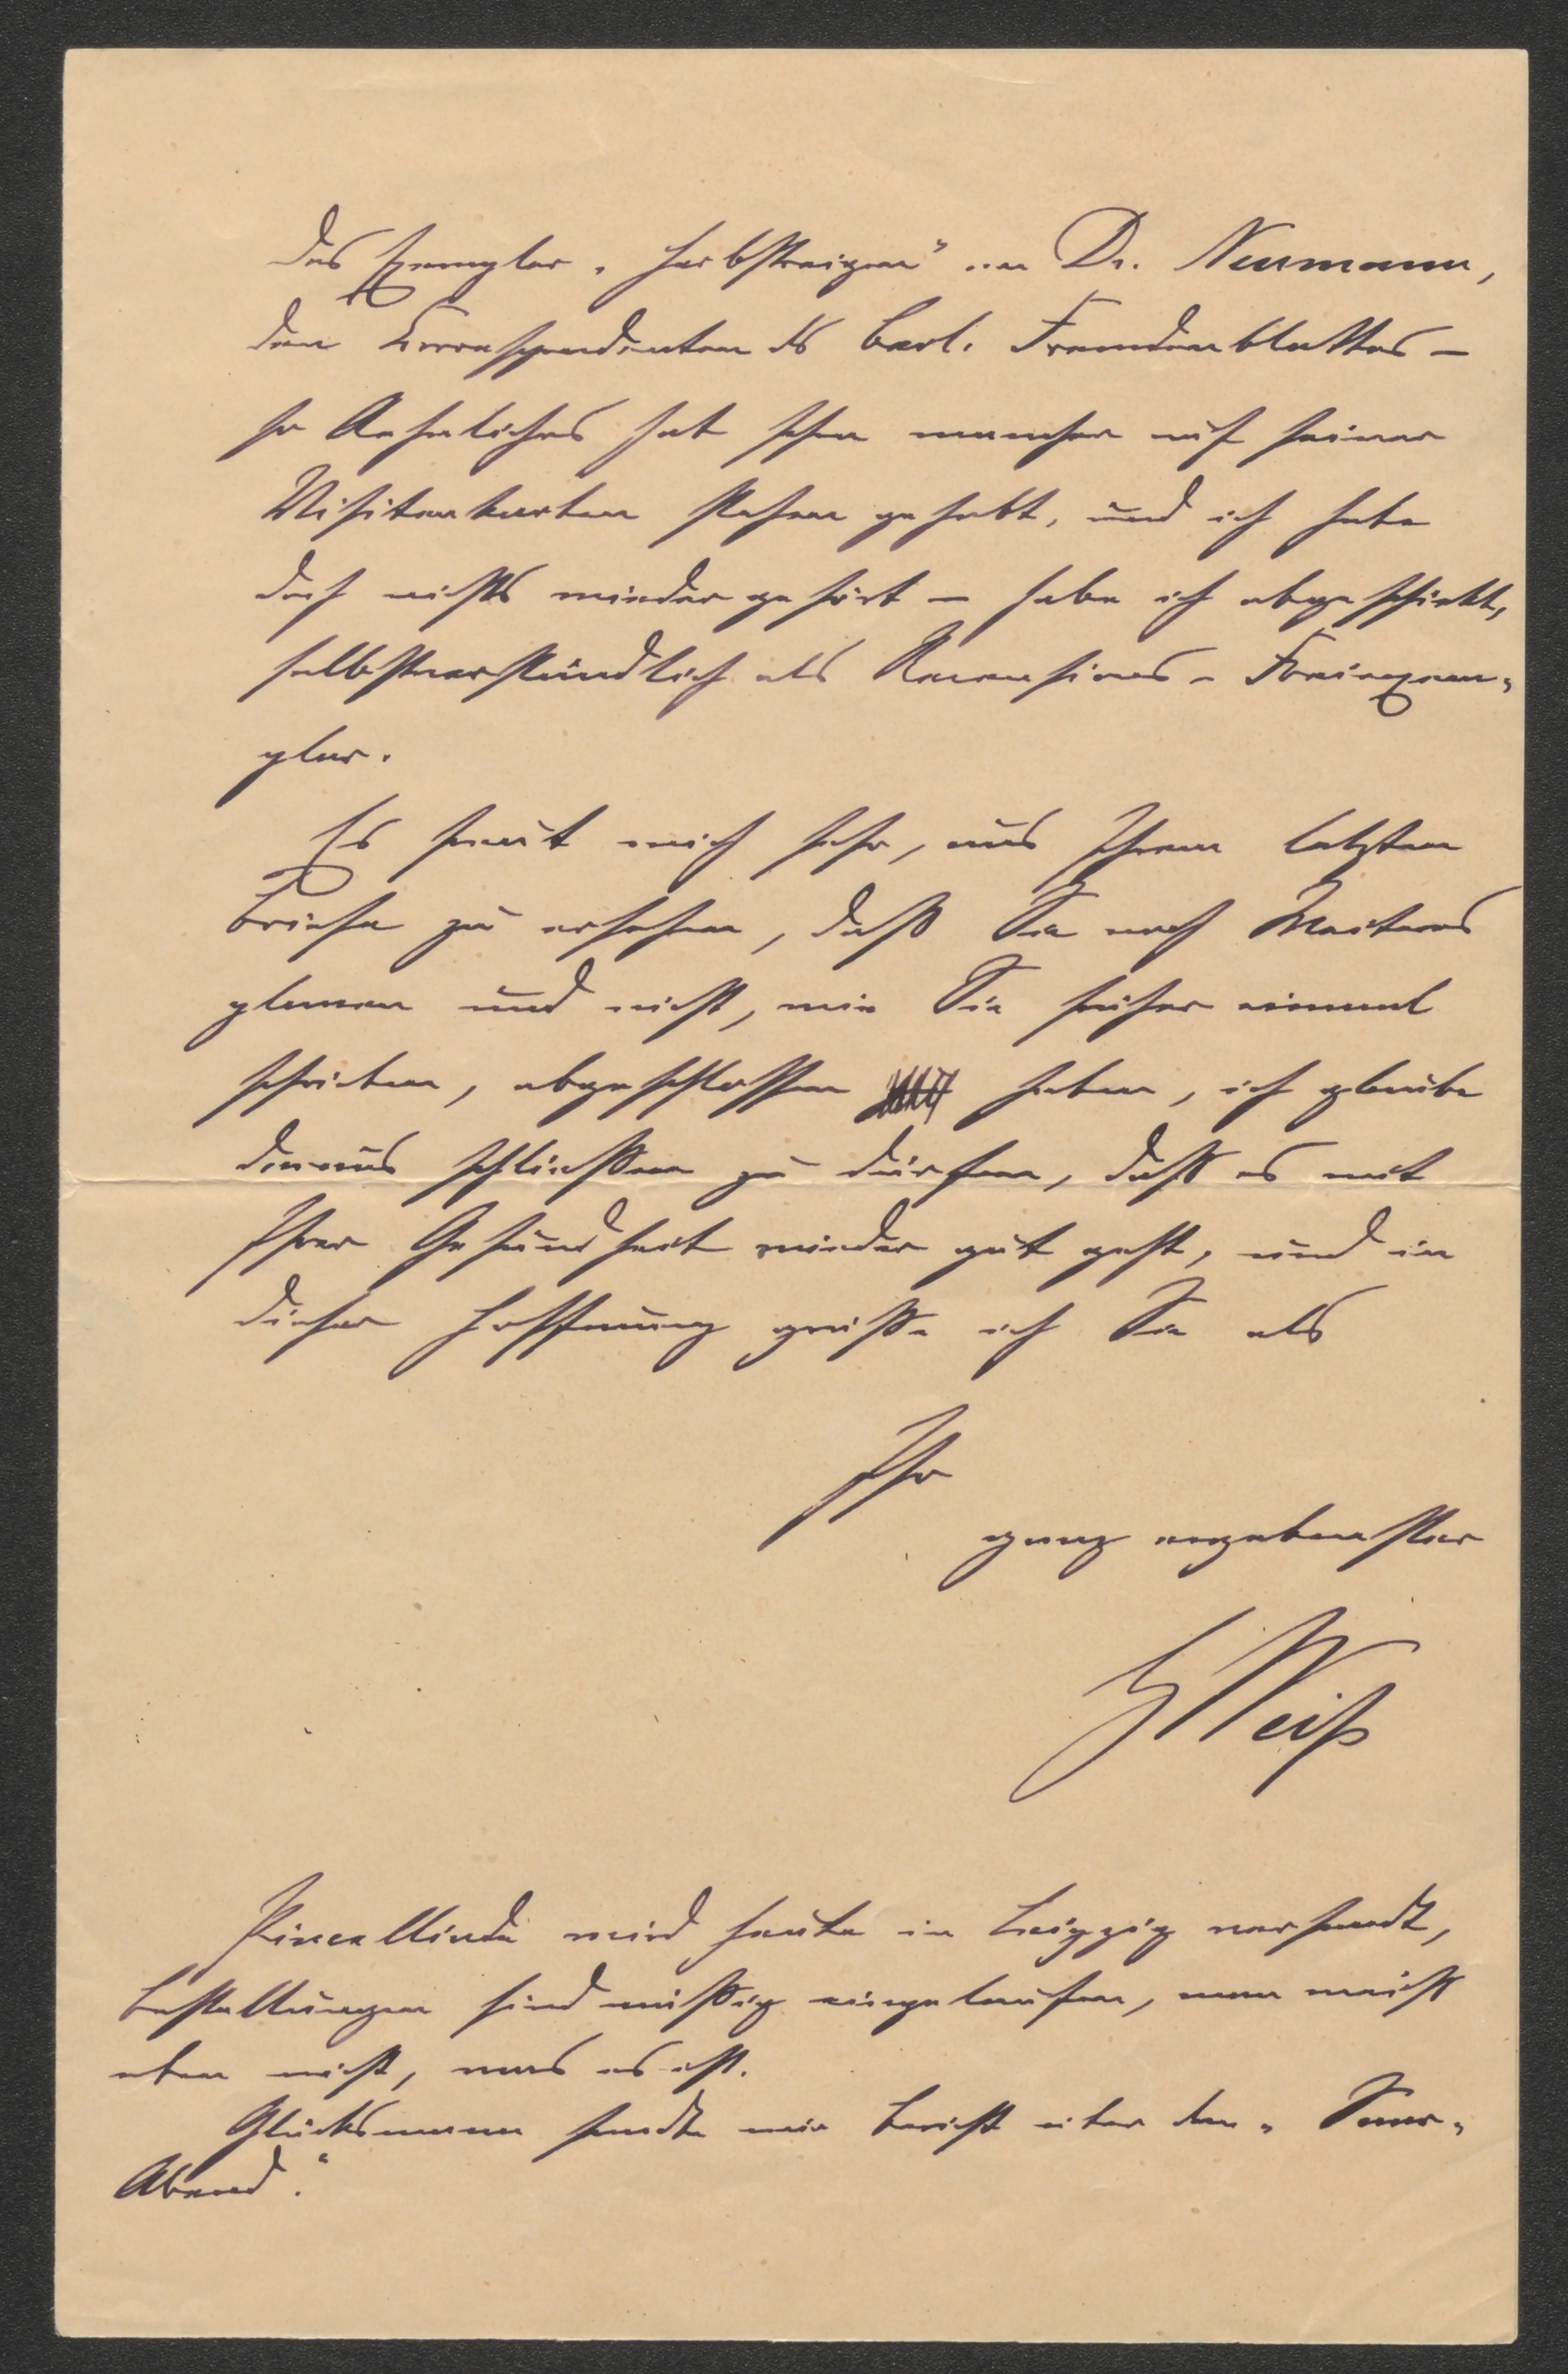 Das Exemplar „Herbstreigen“ an Dr. Neumann,
den Correspondenten des Berl. Fremdenblattes –
so Aehnliches hat schon mancher auf seiner
Visitenkarten stehen gehabt, und ich habe
doch nichts wieder gehört – habe ich abgeschickt,
selbstverständlich als Recensions-Freiexem-
plar.
Es freut mich sehr, aus Ihrem letzten
Briefe zu ersehen, daß Sie noch Weiteres
planen und nicht, wie Sie früher einmal
schrieben, abgeschlossen haben, ich glaube
daraus schließen zu dürfen, daß es mit
Ihrer Gesundheit wieder gut geht, und in
dieser Hoffnung grüße ich Sie als
Ihr
ganz ergebenster
Weiß
wird heute in Leipzig versandt,
Bestellungen sind mäßig eingelaufen, man weiß
eben nicht, was es ist.
Glücksmann sandte mir Bericht über den „
Abend.“